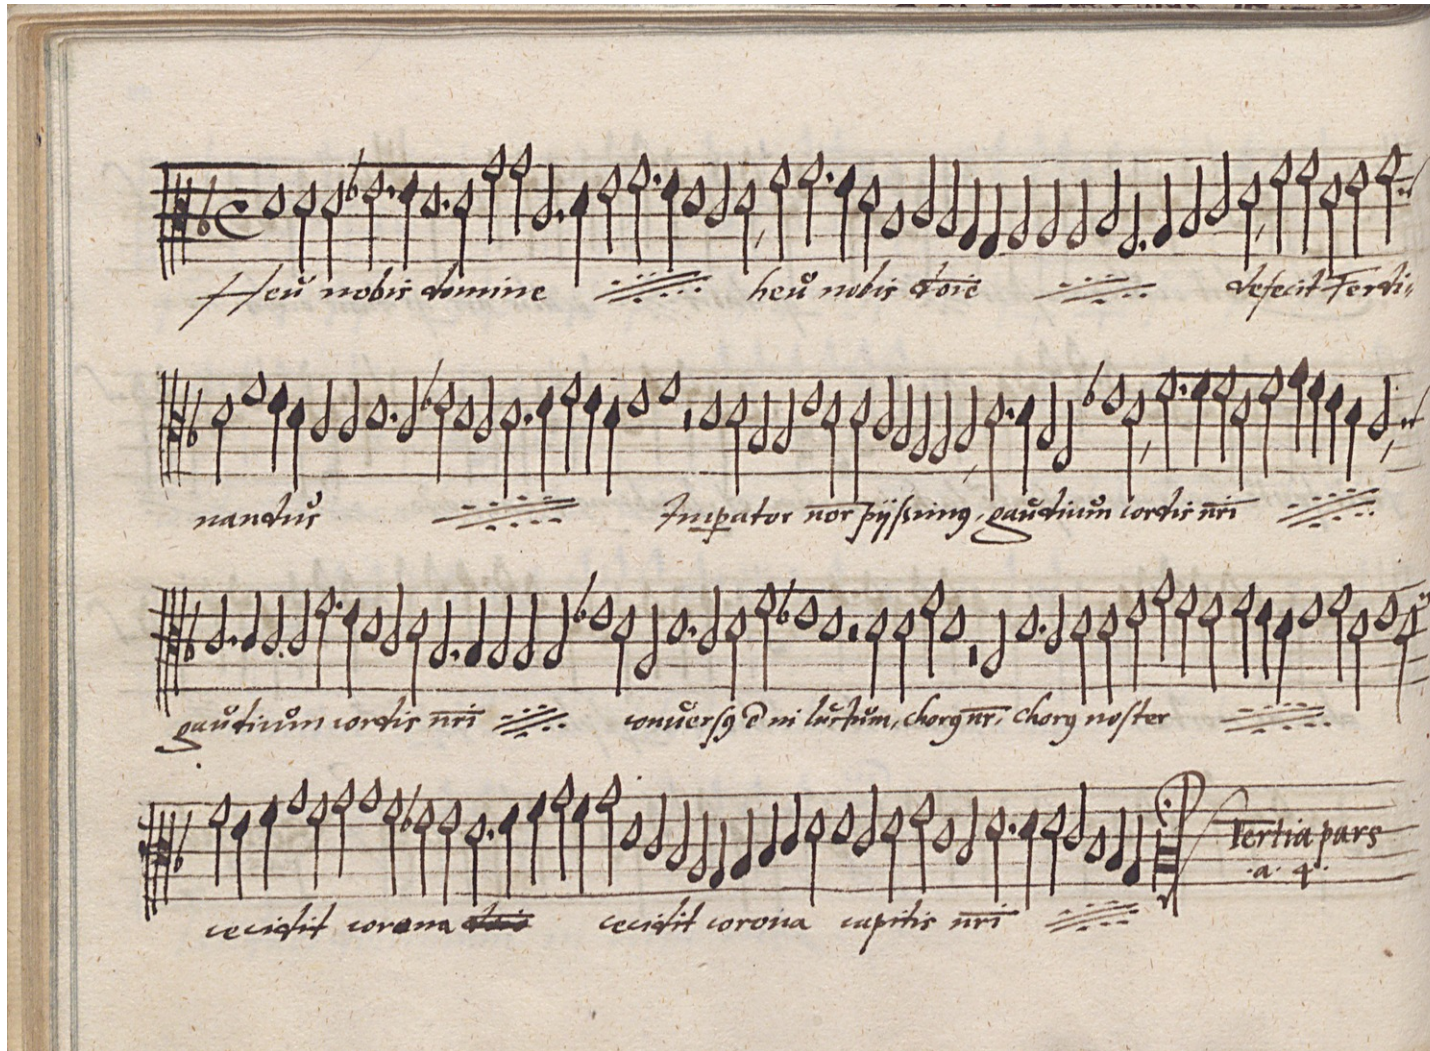 Heu nobis domine heu nobis dōie defecit Ferdi-
nandus Impator nor pijssimus, gaudium cordis nri
gaudium cordis nri conuersus in luctum, chorus nr, chorus noster
Tertia pars
.a. 4.
cecidit corona cecidit corona capitis nri